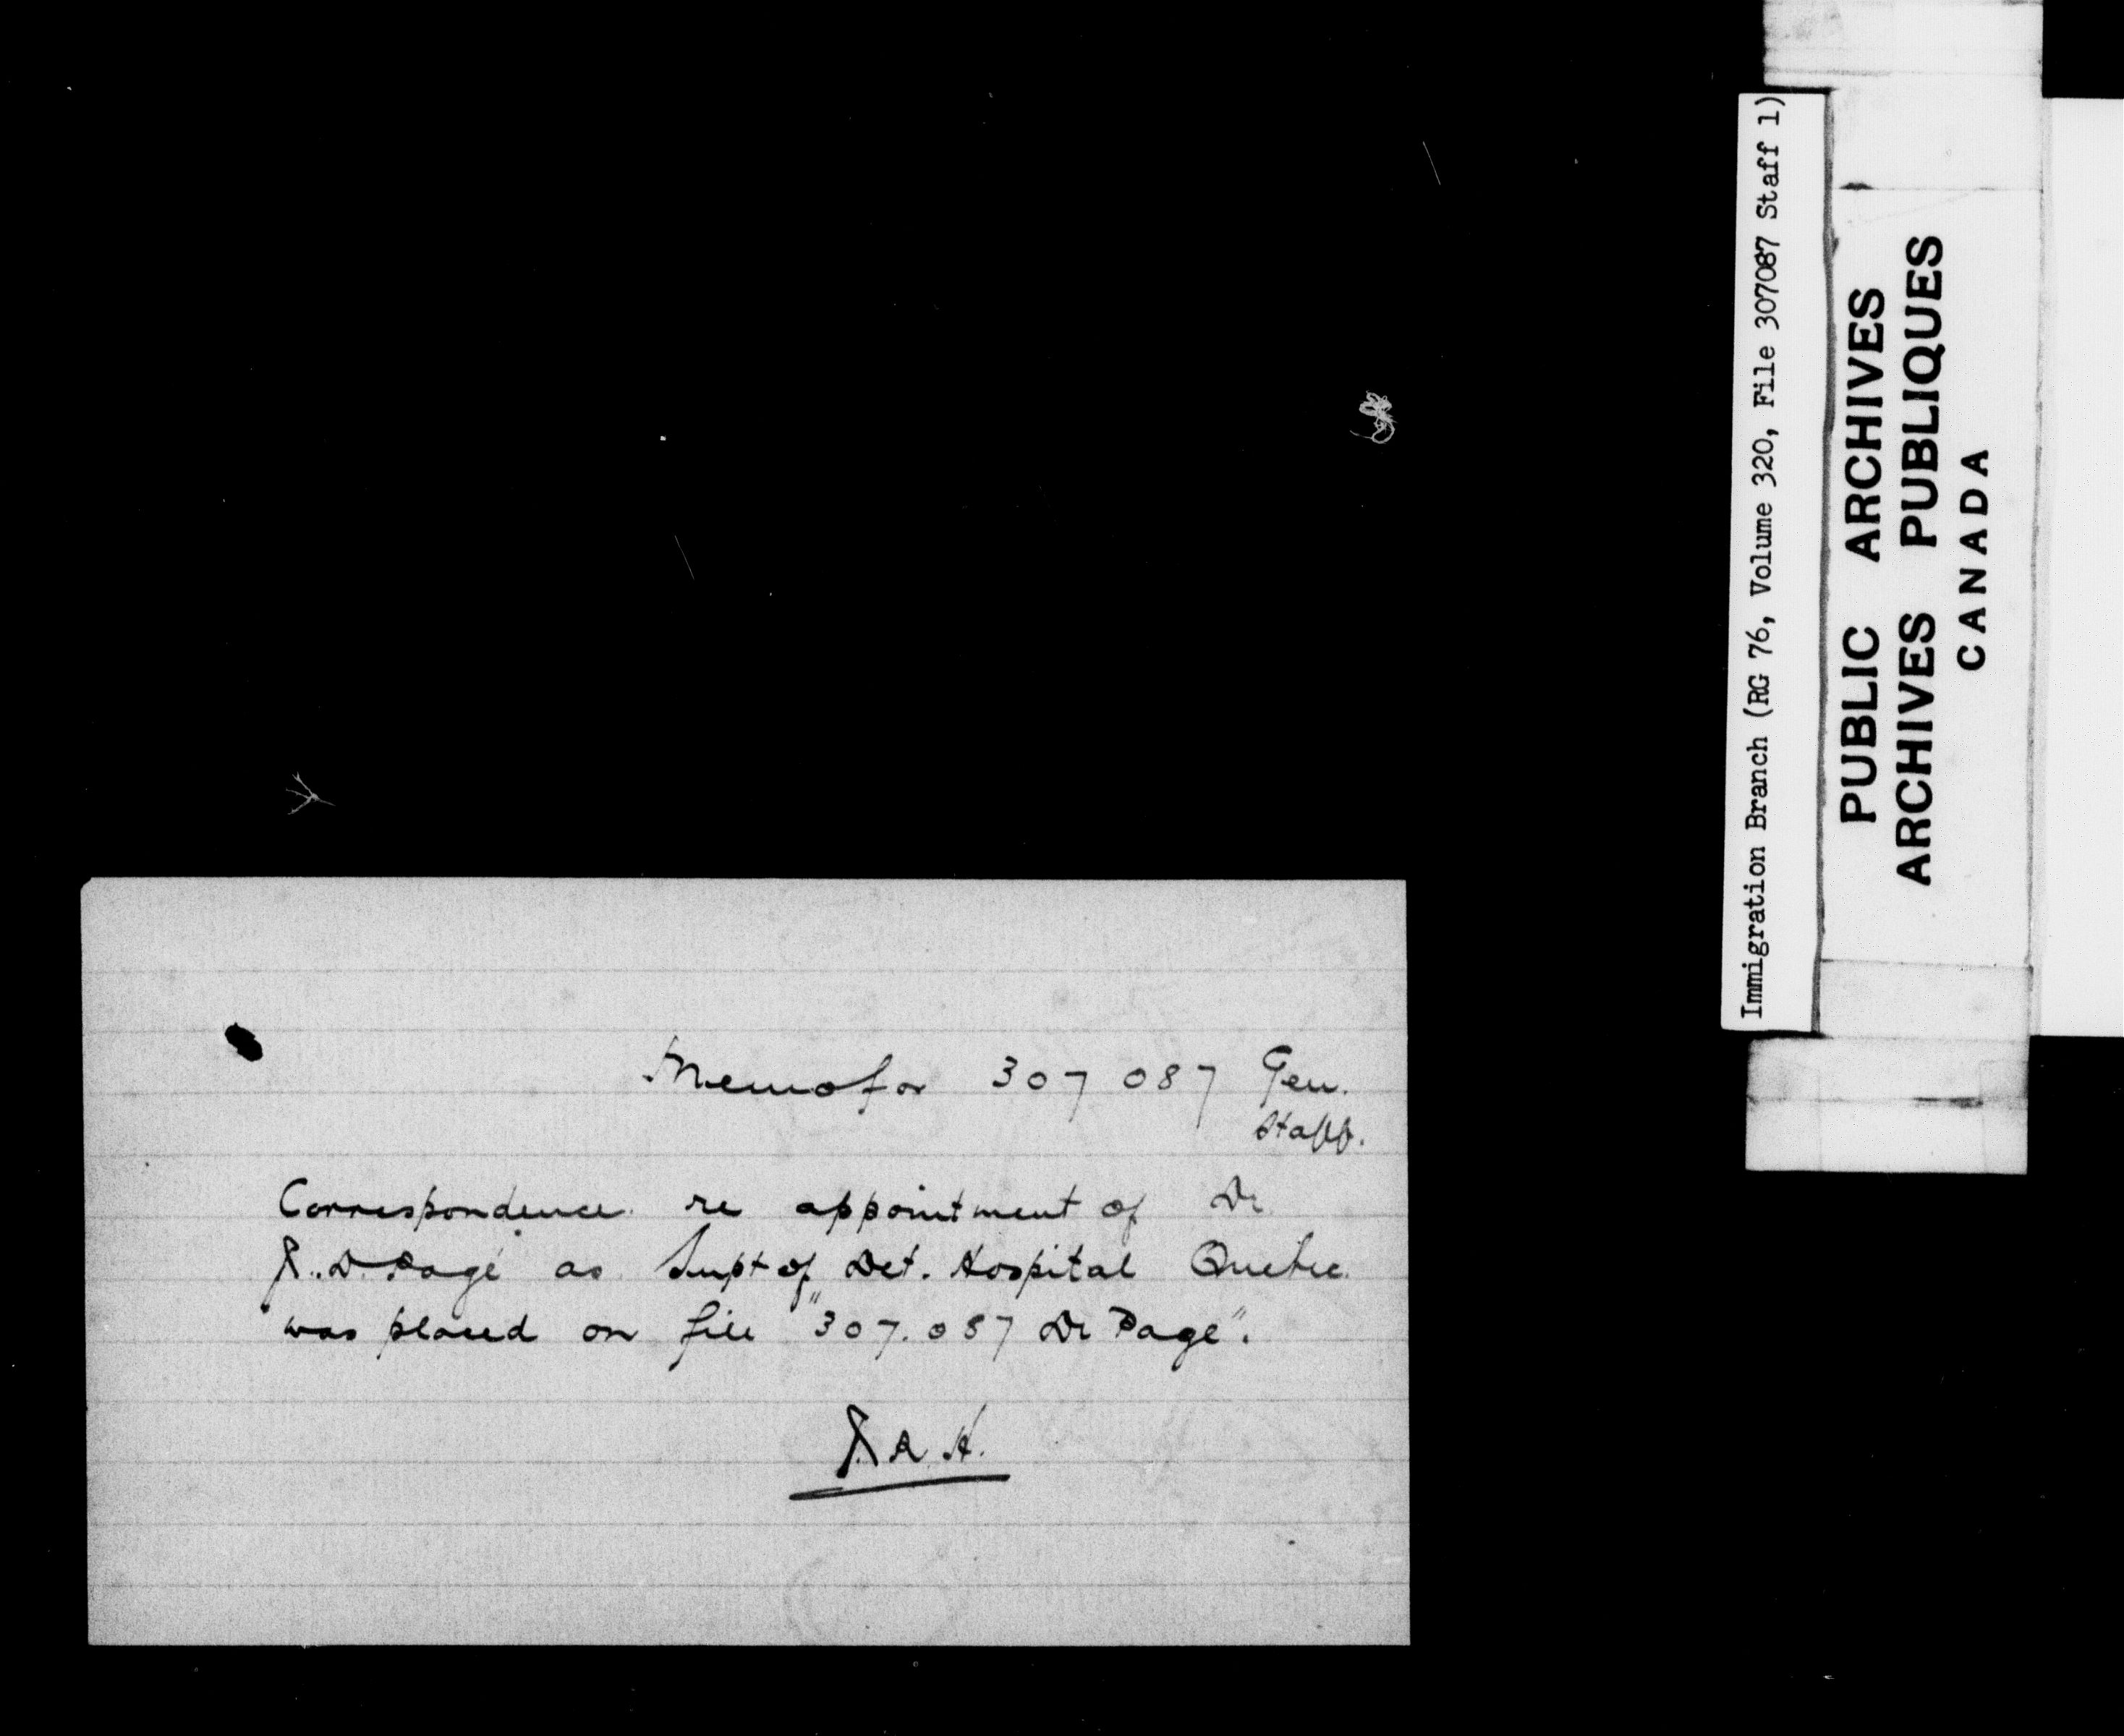 Memo for 307 087 Gen.
Staff.
Correspondence re appointment of Dr
J. D. Pagé as Supt of Det. Hospital Quebec
was placed on file "307.087 Dr Page".
J. R. H.
Immigration Branch (RG 76, Volume 320, File 307087 Staff 1)
PUBLIC ARCHIVES
ARCHIVES PUBLIQUES
CANADA